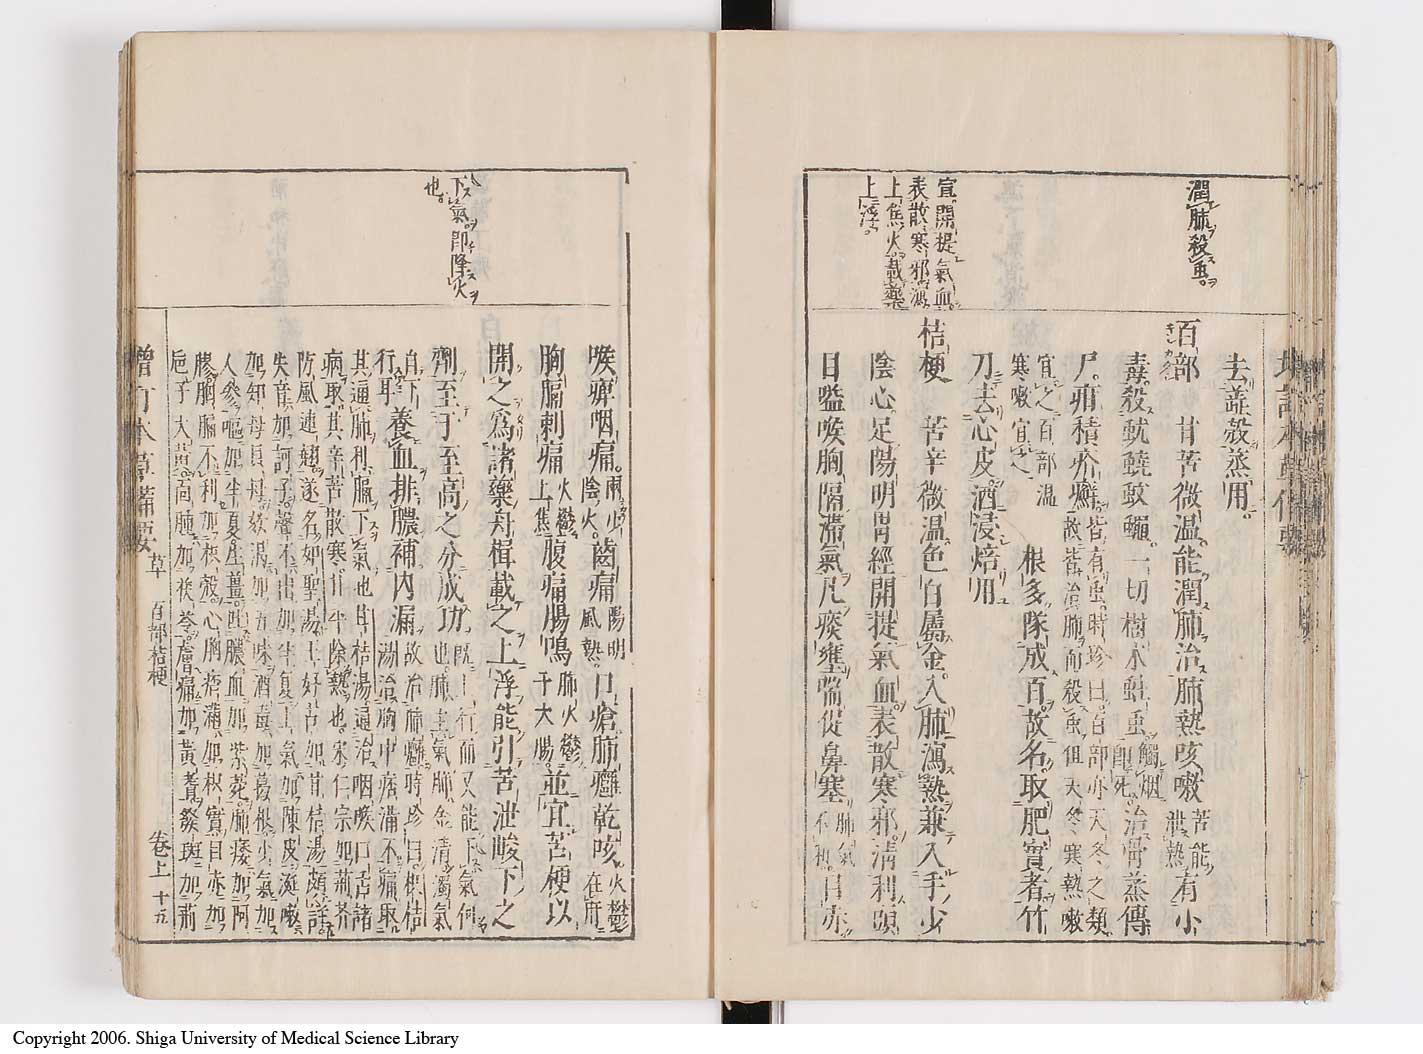 潤肺殺虫
宜開提氣血
表散寒邪瀉
上焦火載藥
上浮
去蘆殻蒸用
百部 甘苦微温能潤肺治肺熱咳嗽苦能泄熱有小
毒殺蚘蟯蚊蠅一切樹木蛀虫觸烟即死治骨蒸傳
尸疳積疥癬皆有虫時珍曰百部亦天冬之類故皆治肺而殺虫但天冬寒熱嗽
宜之百部温寒嗽宜之 根多隊成百故名取肥實者竹
刀去心皮酒浸焙用
桔梗 苦辛微温色白屬金入肺瀉熱兼入手少
陰心足陽明胃經開提氣血表散寒邪清利頭
目嗌喉胸隔滯氣凡痰壅喘促鼻塞肺氣目赤
下氣即降火
也
喉痺咽痛少陰火齒痛陽明風熱口瘡肺癰乾咳火鬱在肺
胸膈刺痛火鬱上焦腹痛腸鳴肺火鬱于大腸並宜苦梗以
開之爲諸藥舟楫載之上浮能引苦泄峻下之
劑至于至高之分成功既上行而又能下氣何也肺主氣肺金清濁氣
自下行耳養血排膿補内漏故治肺癰時珍曰枳桔湯治胸中痞滿不痛取
其通肺利膈下氣也甘桔湯通治咽喉口舌諸
病取其苦辛散寒甘平除熱也宋仁宗加荊芥
防風連翹遂名如聖湯王好古加甘桔湯
失音加訶子聲不出加半夏上氣加陳皮涎嗽
加知母貝母咳渇加五味酒毒加葛根少氣加
人參嘔加半夏生薑吐膿血加紫菀肺痿加阿
膠胸膈不利加枳殻心胸痞滿加枳實目赤加
巵子大黄面腫加茯苓膚痛加黄耆發斑加荊
増訂本草備要 草 百部桔梗 卷上 十五
Copyright 2006. Shiga University of Medical Science Library